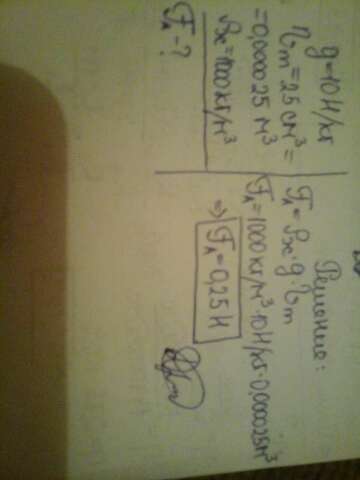 g = 10 Н/кг
Vт = 25 см³ =
= 0,000025 м³
ρж = 1000 кг/м³
FА - ?
Решение:
FА = ρж · g · Vт
FА = 1000 кг/м³ · 10 Н/кг · 0,000025 м³
⇒ FА = 0,25 Н